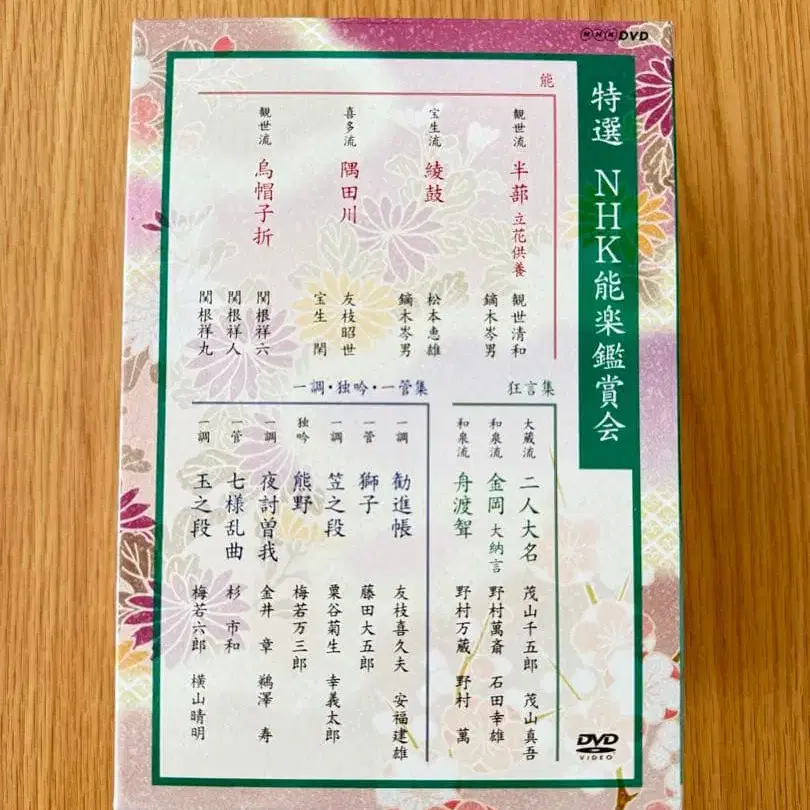 NHK DVD
特選 NHK能楽鑑賞会
能
観世流 半蔀 立花供養 観世清和 鏑木岑男
宝生流 綾鼓 松本恵雄 鏑木岑男
喜多流 隅田川 友枝昭世 宝生 閑
観世流 烏帽子折 関根祥六 関根祥人 関根祥丸
狂言集
大蔵流 二人大名 茂山千五郎 茂山真吾
和泉流 金岡 大納言 野村萬斎 石田幸雄
和泉流 舟渡聟 野村万蔵 野村 萬
一調・独吟・一管集
一調 勧進帳 友枝喜久夫 安福建雄
一管 獅子 藤田大五郎
一調 笠之段 粟谷菊生 幸義太郎
独吟 熊野 梅若万三郎
一調 夜討曽我 金井 章 鵜澤 寿
一管 七様乱曲 杉 市和
一調 玉之段 梅若六郎 横山晴明
DVD
VIDEO